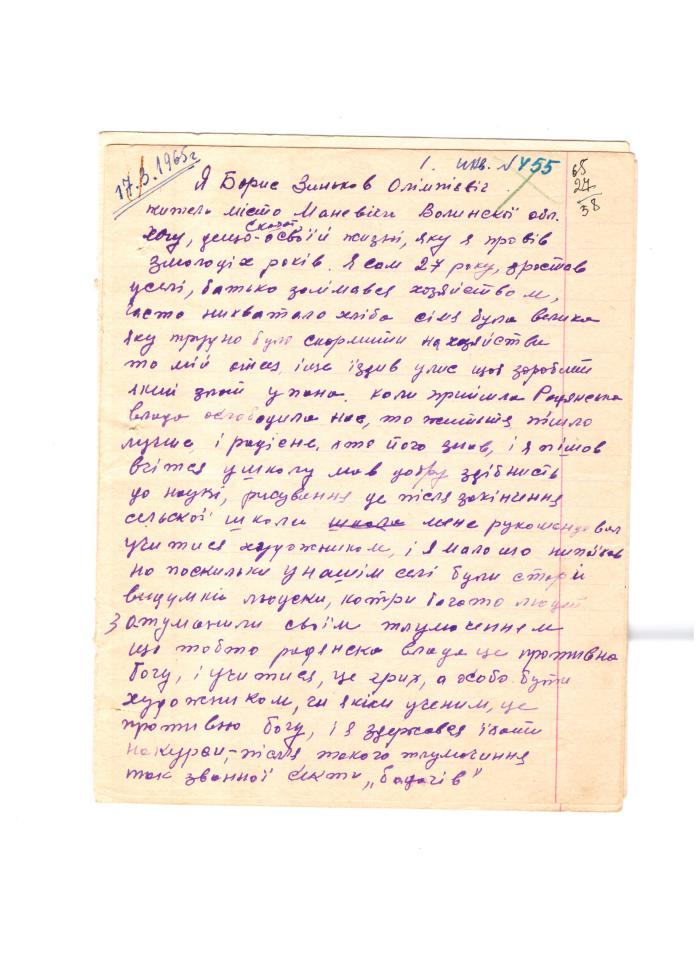 17.3.1965г
1. инв. №455
65
27
38
Я Борис Зиньков Олімпієвіч
житель місто Маневічи Волинскої обл.
хочу, дещо сказат о своїй жизні, яку я провів
змолодіх років. Я сам 27 року, зростав
уселі, батько займався хозяйством,
часто нихватало хліба сімя була велика
яку трудно було скормити нахозяйстви
то мій отец іще їздив уліс щоб заробити
який злот упана. Коли прийшла Радянська
влада освободила нас, то життя пішло
лучше, і радісне, хто його знав, і я пішов
вчітся ушколу мав добру здібність
до наукі, рисування де після закінчення
сельскої школи школи мене рукомендовал
учитися художником, і я мало що нипоїхав
но поскильки унашім селі були старїй
видумкі людски, котри богато людей
затуманили своїм тлумаченням
що тобто радянска влада це противна
богу, і учитися, це грих, а особо бути
художником, чи якім ученим, це
противно богу, і я здержався їхати
накурси,- після такого тлумачиння
так званної секти „